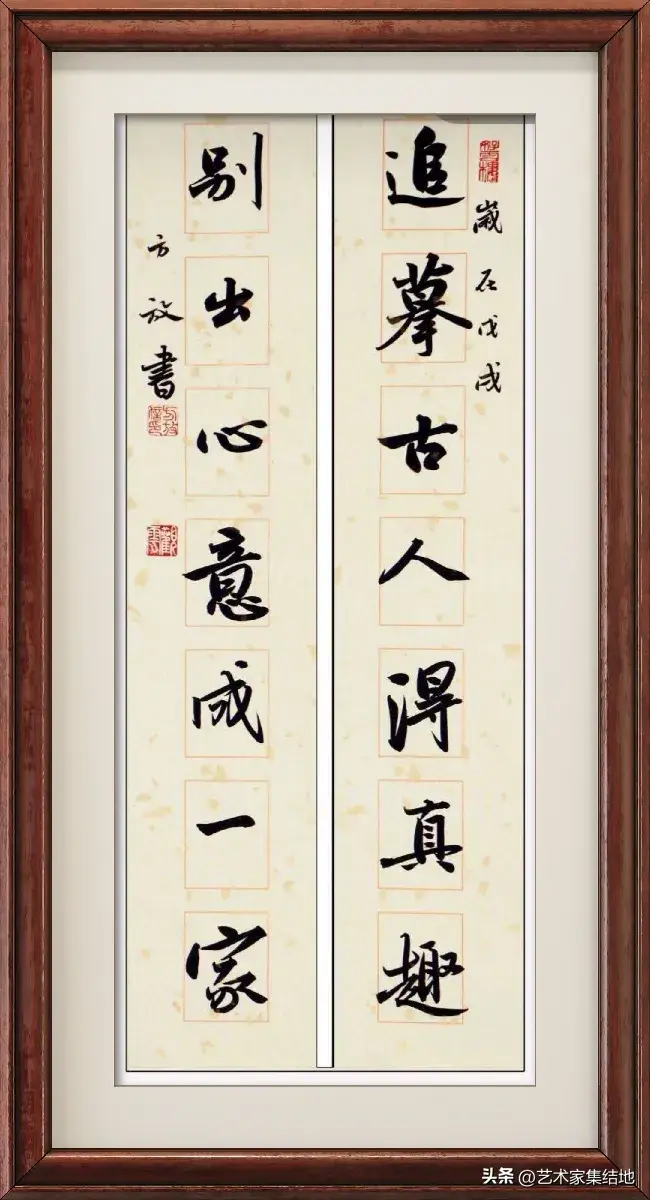 歲在戊戌
追摹古人得真趣
别出心意成一家
方放書
头条 @艺术家集结地